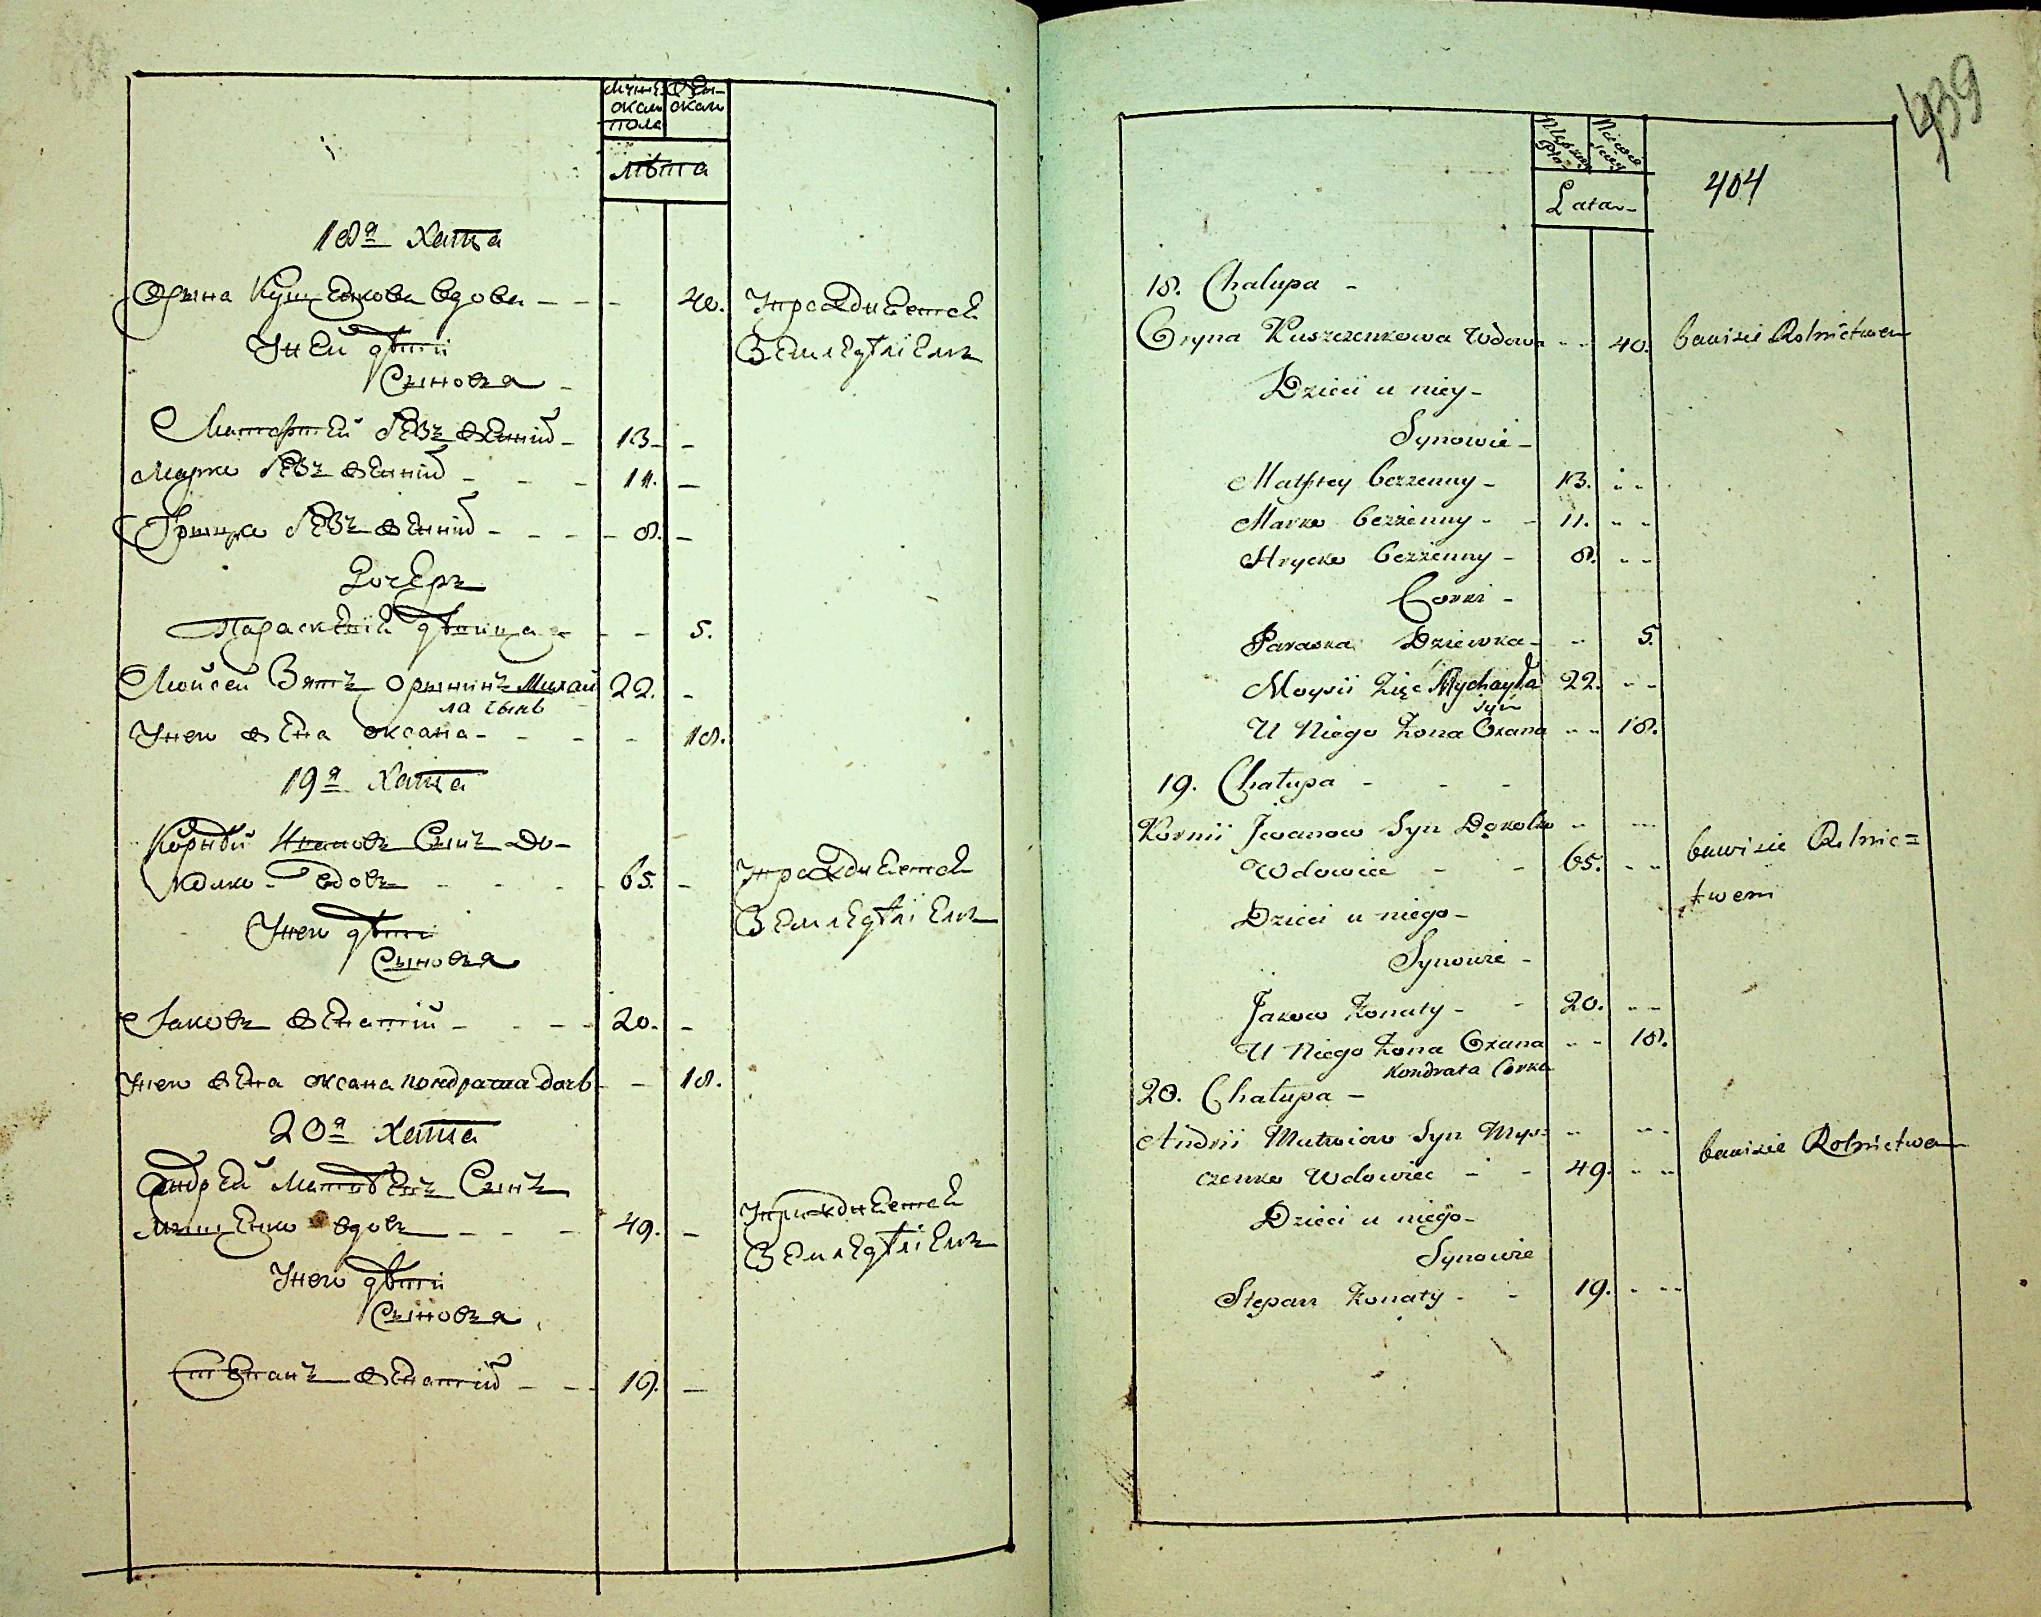 мужеска пола
женска
лѣта
18я Хата
Орына Кущенкова вдова - - - 40. Упраждняется
У ней дѣти Земледѣліемъ
Сыновья -
Матфей безъ женній - 13 - -
Марко безъ женній - - - 11. -
Грыцко безъ женній - - - - 8. -
Дочерь
Параскевія дѣвица - - - 5.
Мойсей Зять Орынинъ Михай 22. -
ла сынъ
У него жена оксана - - - - 18.
19я Хата
Корнѣй Ивановъ Сынъ До-
колко вдовъ - - - - 65. - Упраждняется
У него дѣти Земледѣліемъ
Сыновья
Яковъ женатій - - - - 20. -
У него жена оксана кондрата дочь - - 18.
20я Хата
Андрей Матвѣевъ Сынъ
Мищенко вдовъ - - - 49. - Упраждняется
У него дѣти Земледѣліемъ
Сыновья
Степанъ женатій - - - 19. -
439
404
Lata -
18. Chalupa -
Oryna Kuszczenkowa Wdowa - - 40. bawi sie Rolnictwem
Dzieci u niey -
Synowie -
Matfiey bezzenny - 13. - -
Marko bezżenny - - 11. - -
Hrycko bezżenny - 8. - -
Corki -
Paraska Dziewka - - 5.
Moysii Zięc Mychayła 22. - -
syn
U Niego Żona Oxana - - 18.
19. Chałupa - - -
Kornii Jwanow Syn Dokolko - - - -
Wdowiec - - 65. - - bawi sie Rolnic=
twem
Dzieci u niego -
Synowie -
Jakow Żonaty - - 20. - -
U Niego Żona Oxana - - 18.
Kondrata Corka
20. Chałupa -
Andrii Matwiow Syn Mys- - - - - bawi sie Rolnictwem
czenko Wdowiec - - 49. - -
Dzieci u niego -
Synowie
Stepan Żonaty - - 19. - - -